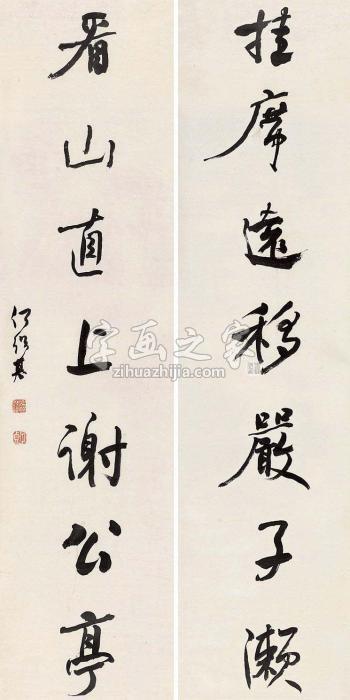 挂席遠移嚴子瀨
看山直上谢公亭
何紹基
字画之家
zihuazhijia.com